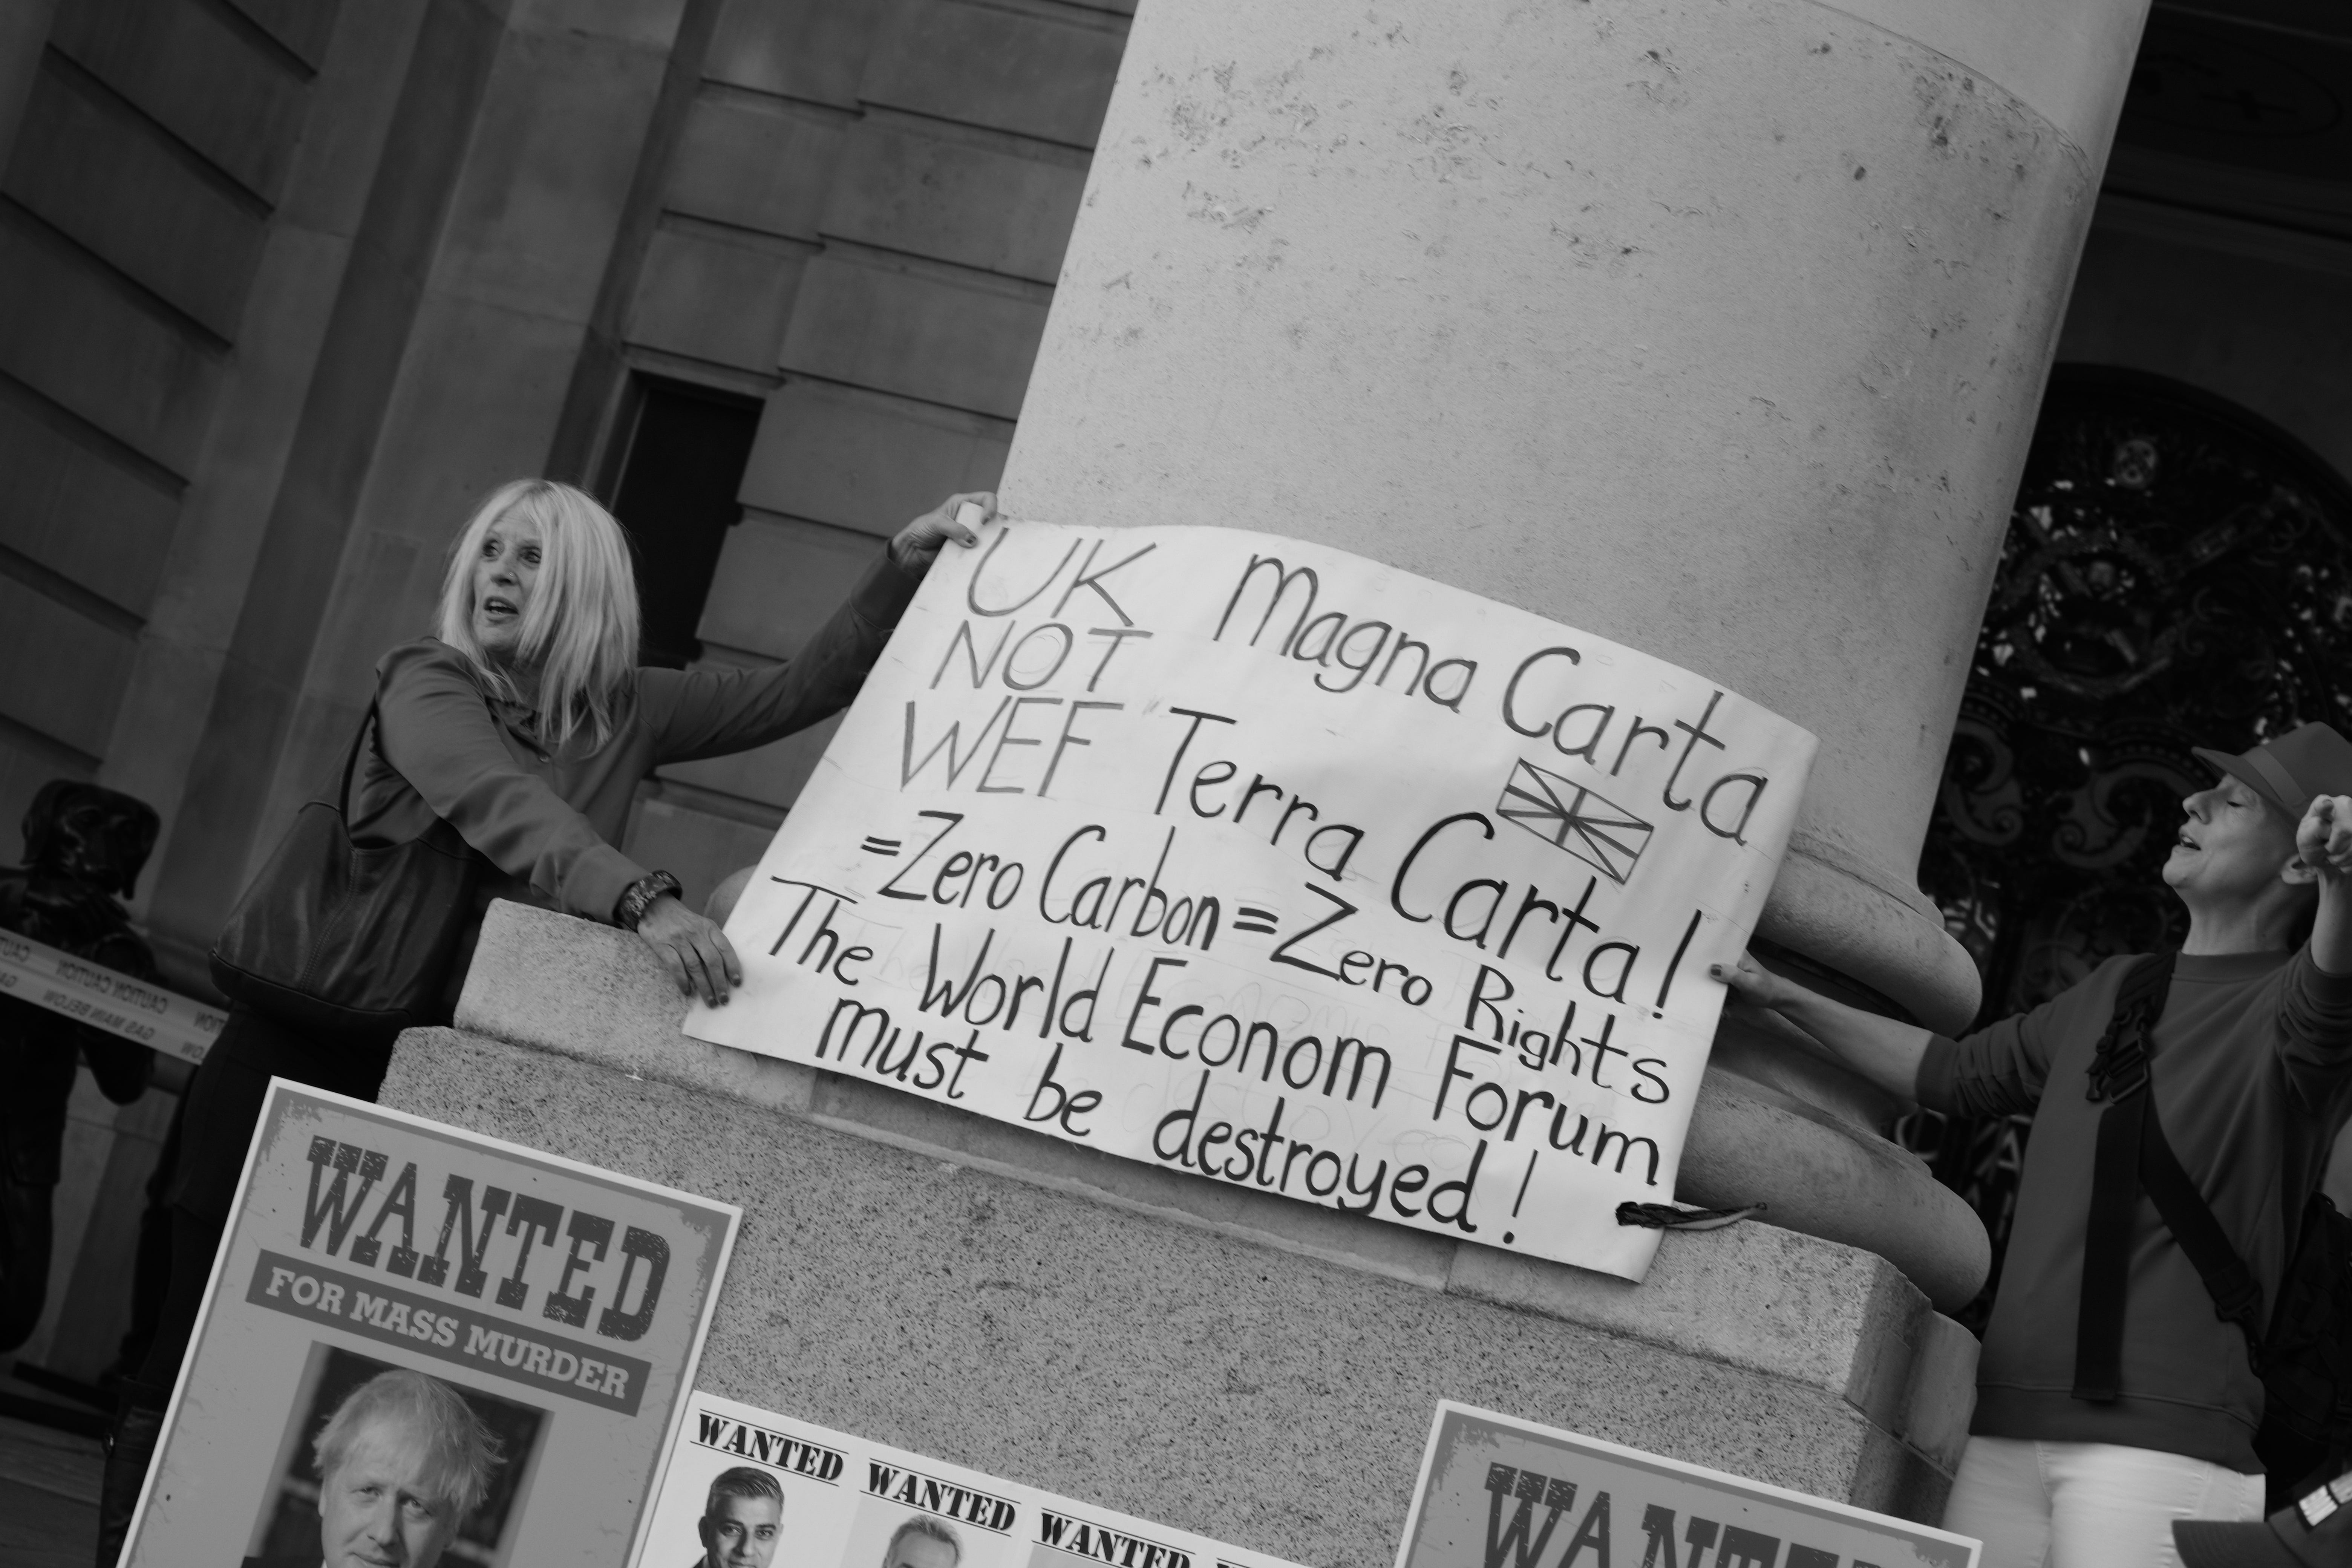 UK Magna Carta
NOT
WEF Terra Carta!
=Zero Carbon=Zero Rights
The World Econom Forum
must be destroyed!
CAUTION CAUTION
GAS MAIN BELOW
WANTED
FOR MASS MURDER
WANTED
WANTED
WANTED
WANTED